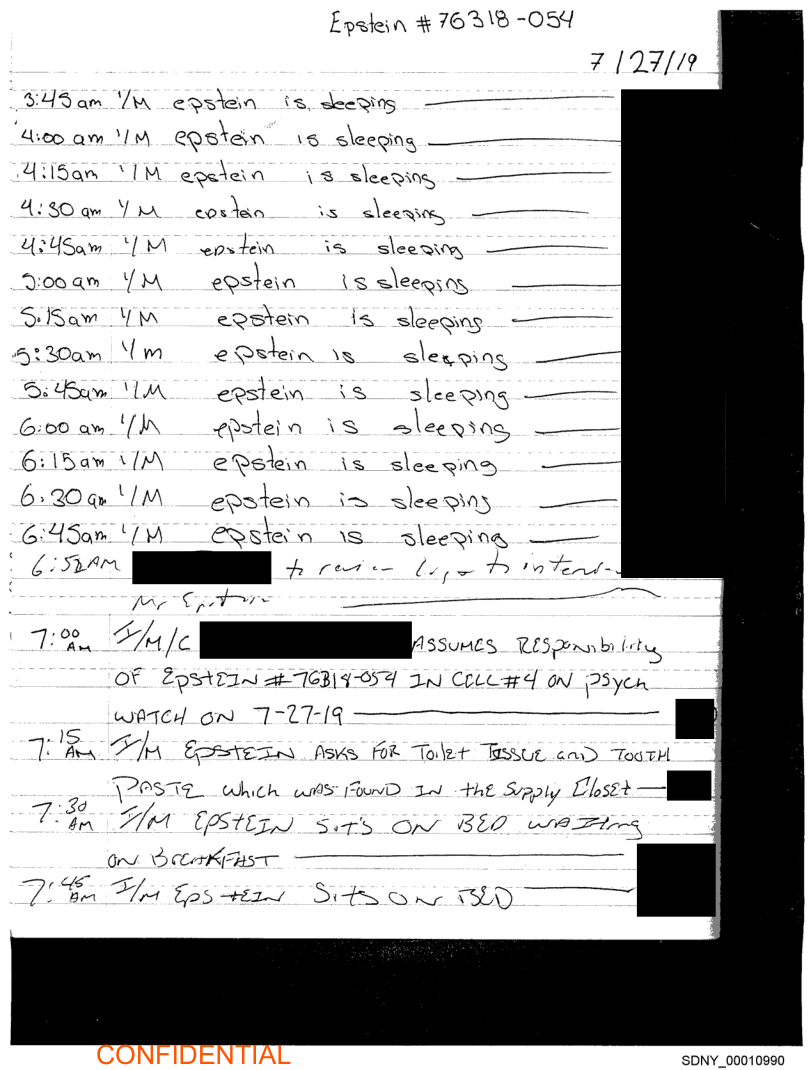 Epstein # 76318-054
7/27/19
3:45am I/M epstein is sleeping
4:00 am I/M epstein is sleeping
4:15am I/M epstein is sleeping
4:30 am I/M epstein is sleeping
4:45am I/M epstein is sleeping
5:00 am I/M epstein is sleeping
5:15am I/M epstein is sleeping
5:30am I/m epstein is sleeping
5:45am I/M epstein is sleeping
6:00 am I/M epstein is sleeping
6:15am I/M epstein is sleeping
6:30am I/M epstein is sleeping
6:45am I/M epstein is sleeping
6:52AM to review to
Mr Epstein
7:00 AM I/M/C ASSUMES RESponsibility
OF EPSTEIN # 76318-054 IN CELL #4 ON PSych
WATCH ON 7-27-19
7:15 AM I/M EPSTEIN ASKS FOR Toilet TISSUE and TOOTH
PASTE which was FOUND IN the Supply Closet
7:30 AM I/M EPSTEIN SITS ON BED WAITing
ON BREAKFAST
7:45 AM I/M EPSTEIN SITS ON BED
CONFIDENTIAL
SDNY_00010990